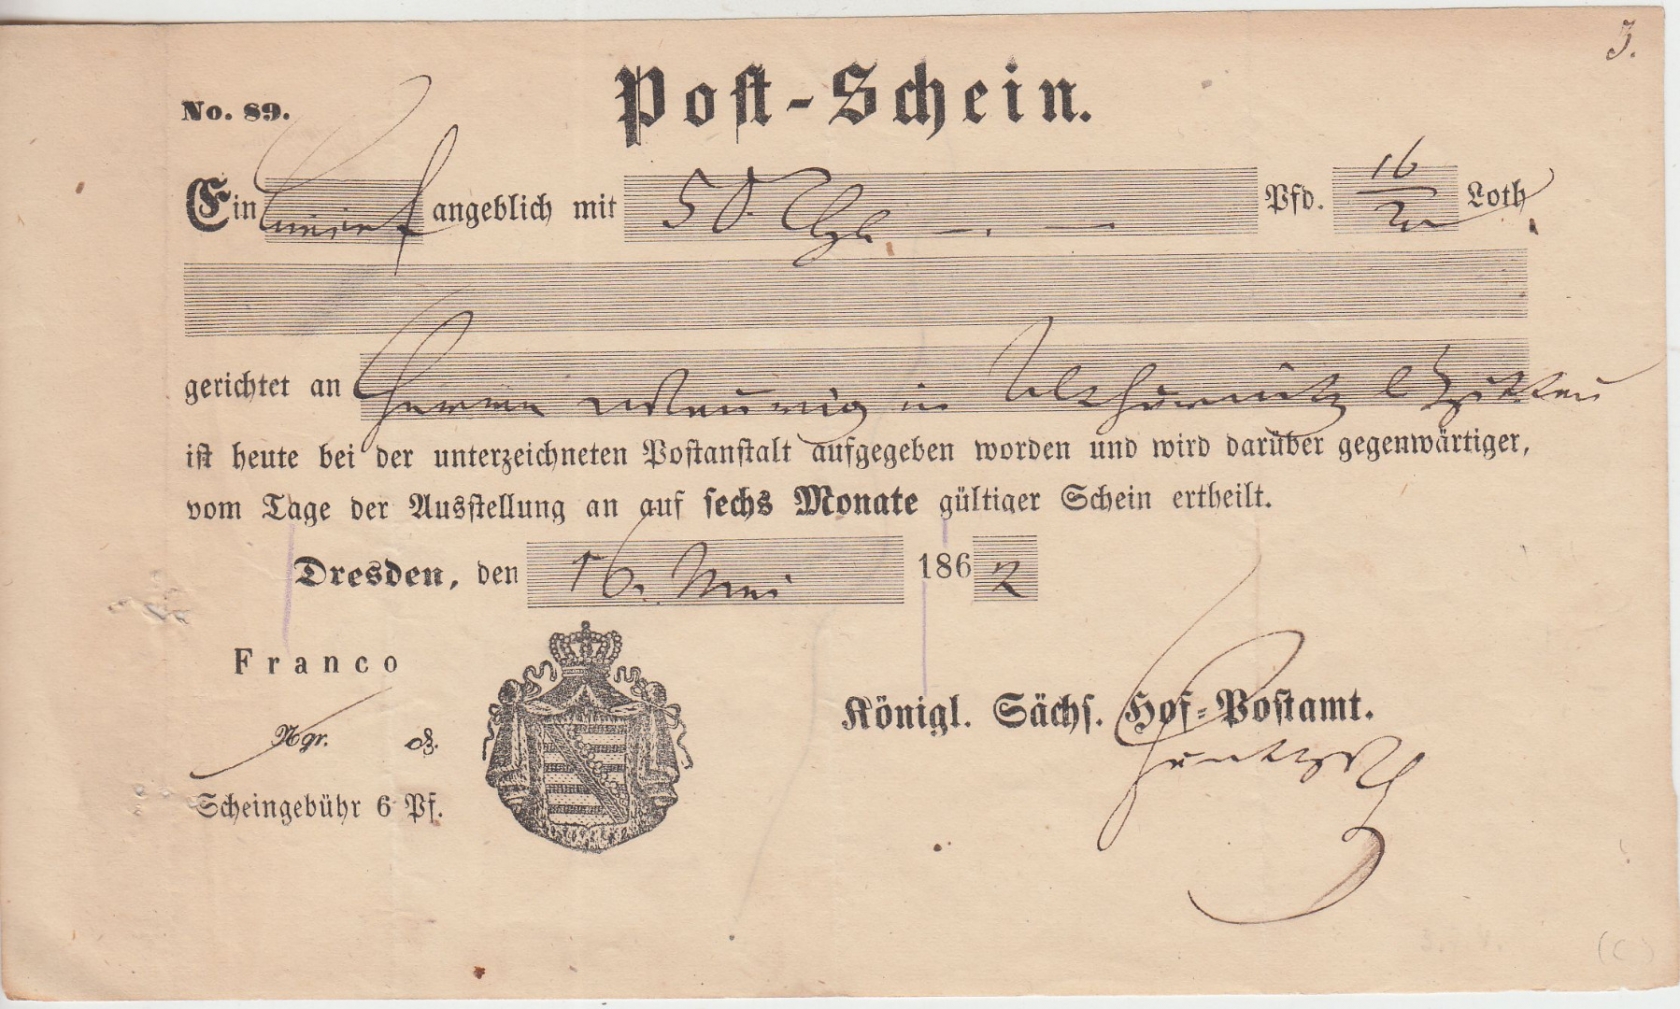 3.
No. 89.
Post-Schein.
Ein angeblich mit 50 Thlr Pfd. 16 Loth
gerichtet an Herrn in
ist heute bei der unterzeichneten Postanstalt aufgegeben worden und wird darüber gegenwärtiger,
vom Tage der Ausstellung an auf sechs Monate gültiger Schein ertheilt.
Dresden, den 16. Mai 1862
Franco
Ngr. ₰.
Scheingebühr 6 Pf.
Königl. Sächs. Hof-Postamt.
(c)